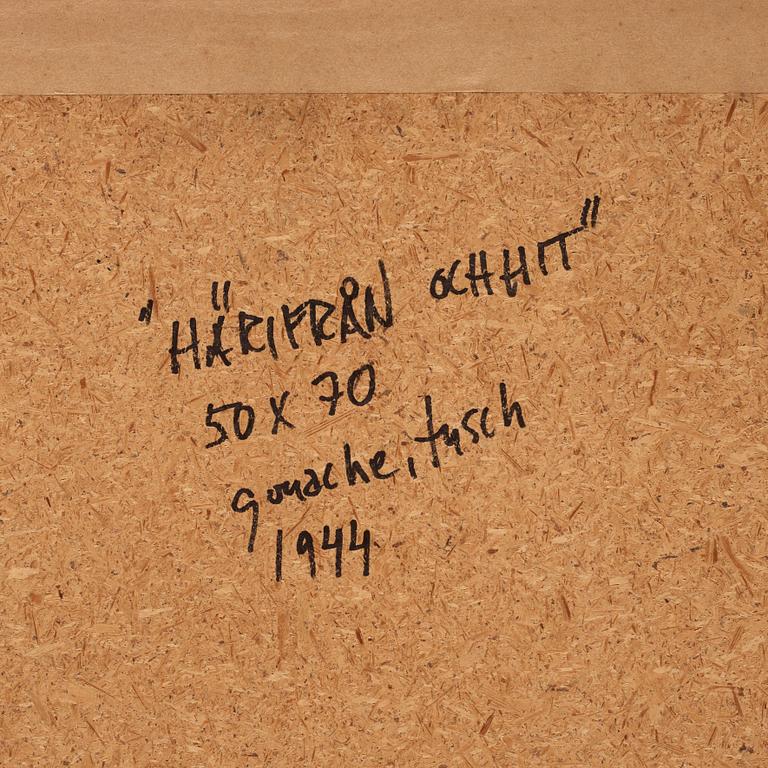 "HÄRIFRÅN OCH HIT"
50 X 70
gouache, tusch
1944